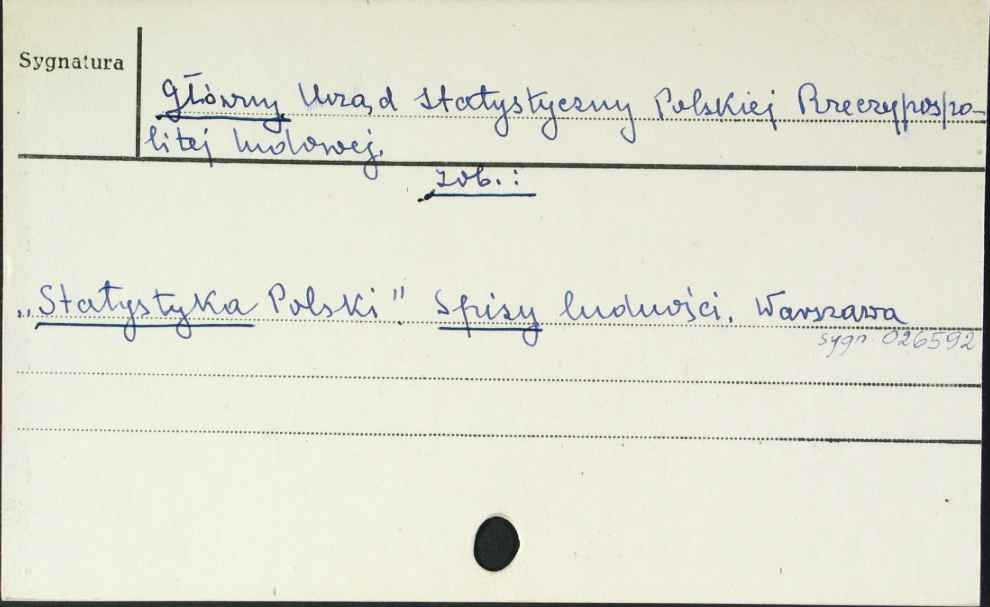 Sygnatura
Główny Urząd Statystyczny Polskiej Rzeczypospo-
litej Ludowej.
zob.:
„Statystyka Polski". Spisy ludności. Warszawa
sygn. 026592